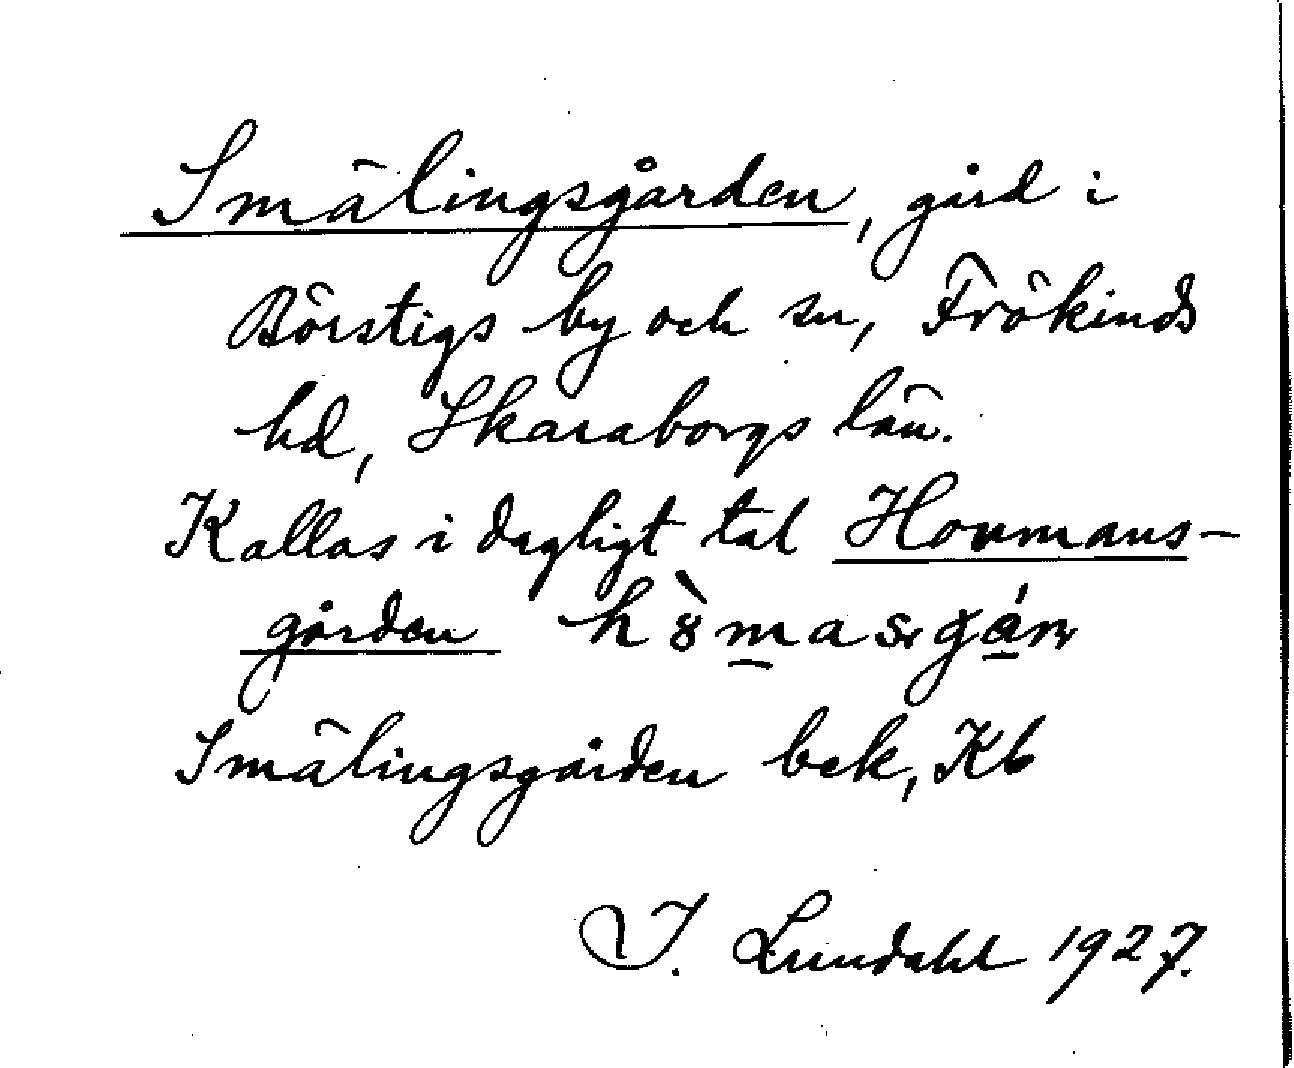 Smälingsgården, gård i
Börstigs by och sn, Frökinds
hd, Skaraborgs län.
Kallas i dagligt tal Hovmans-
gården
Smälingsgården bek, Kb
I. Lundahl 1927.